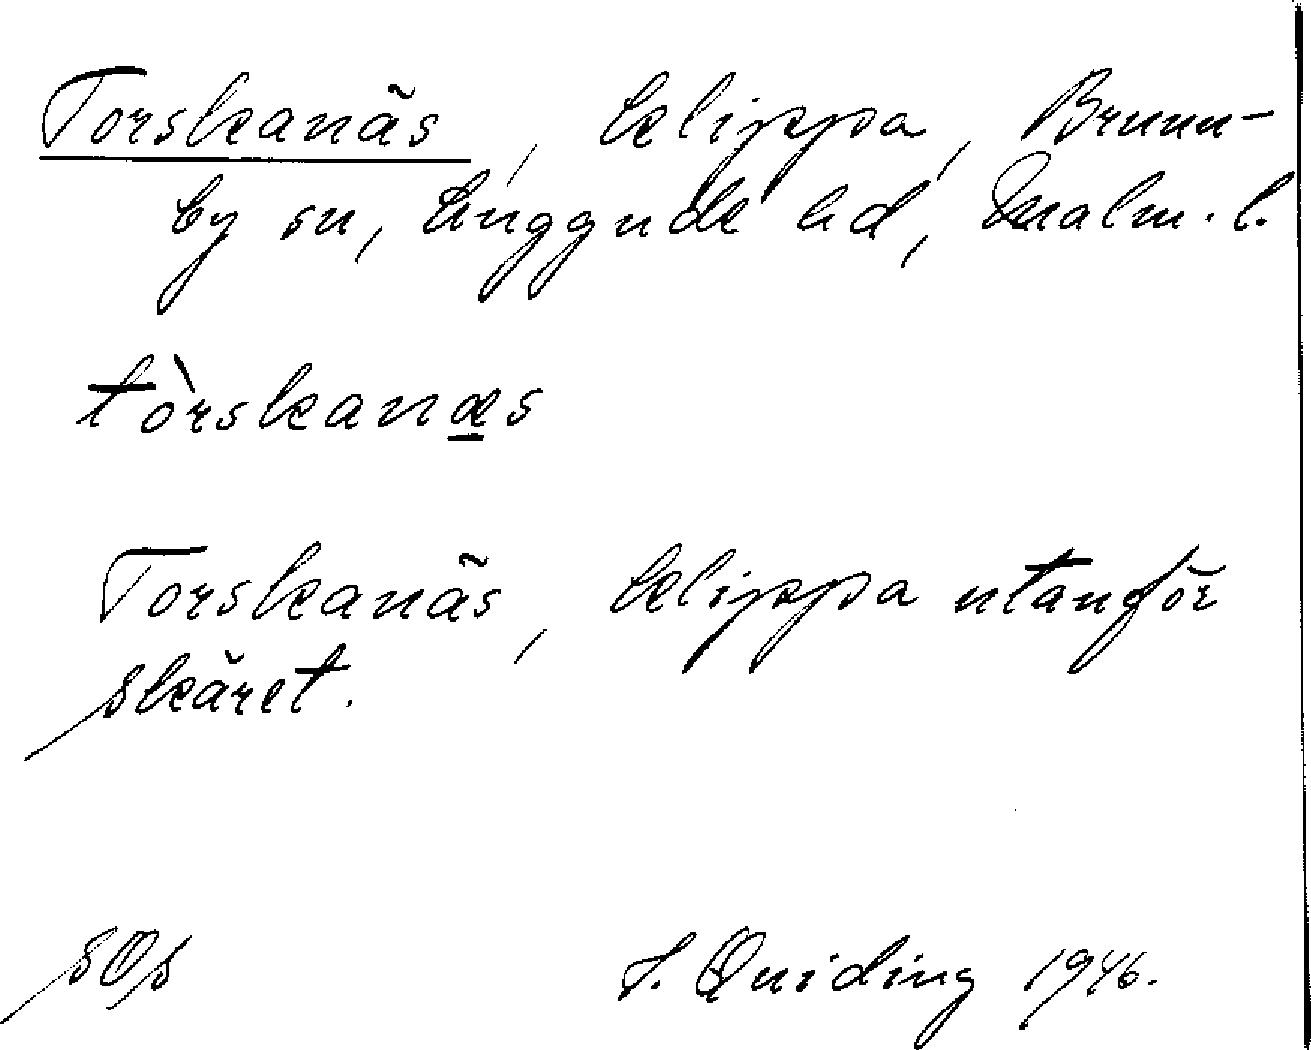 Torskanäs, klippa, Brunn-
by sn, Luggude hd, Malm. l.
tòrskanæs
Torskanäs, klippa utanför
skäret.
SOS
Quiding 1946.